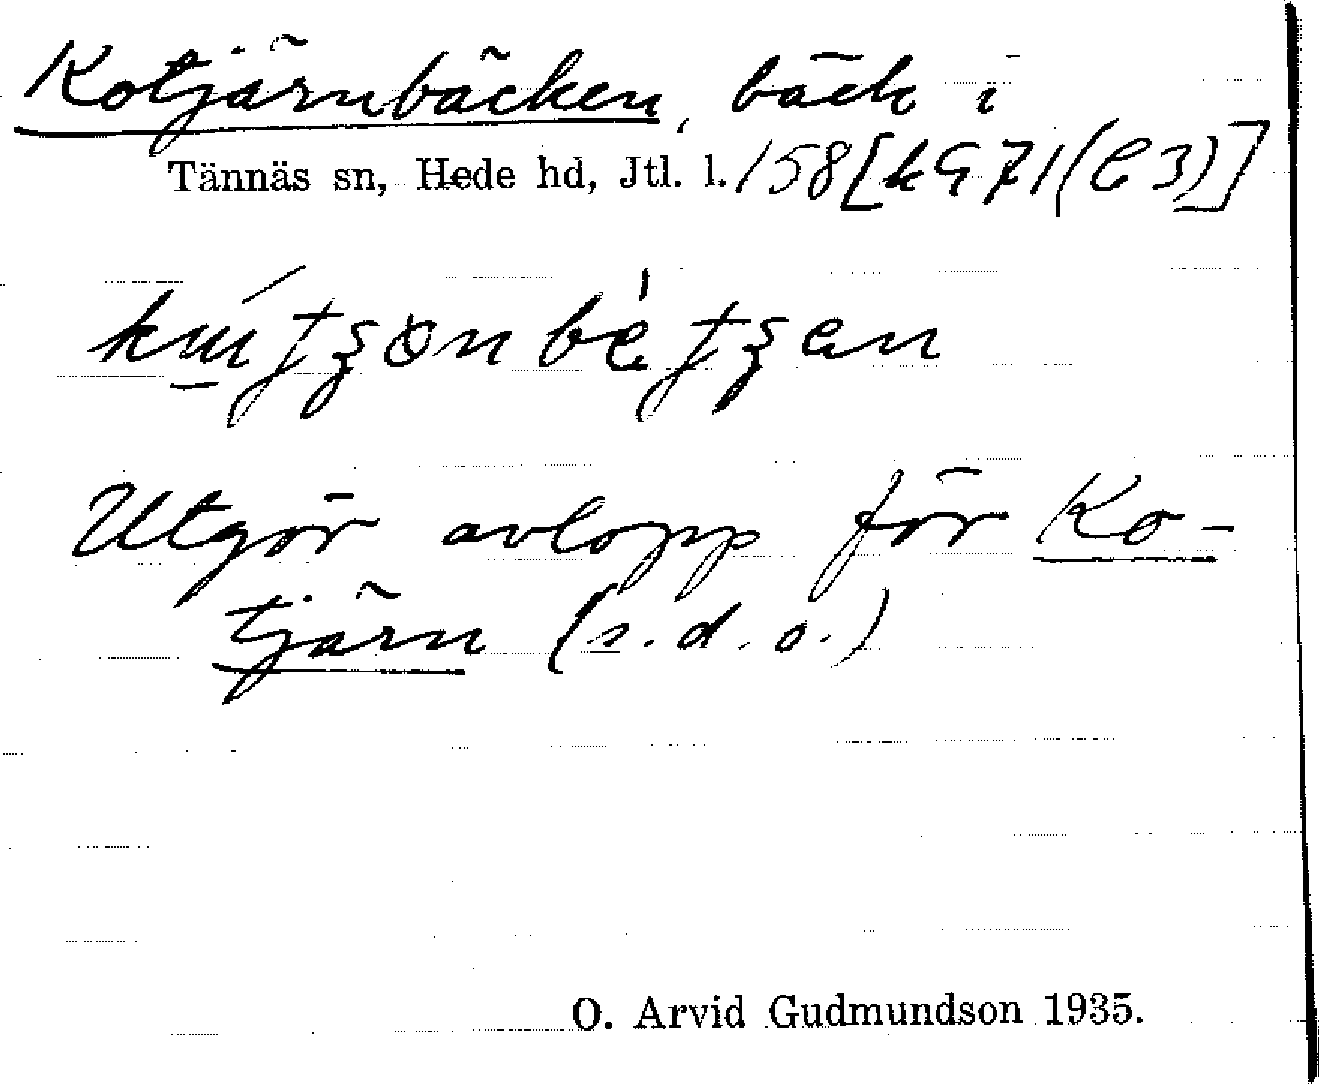 Kotjärnbäcken, bäck i
Tännäs sn, Hede hd, Jtl. l. 158 [kG 71 (C 3)]
Utgör avlopp för Ko-
tjärn (s.d.o.)
O. Arvid Gudmundson 1935.